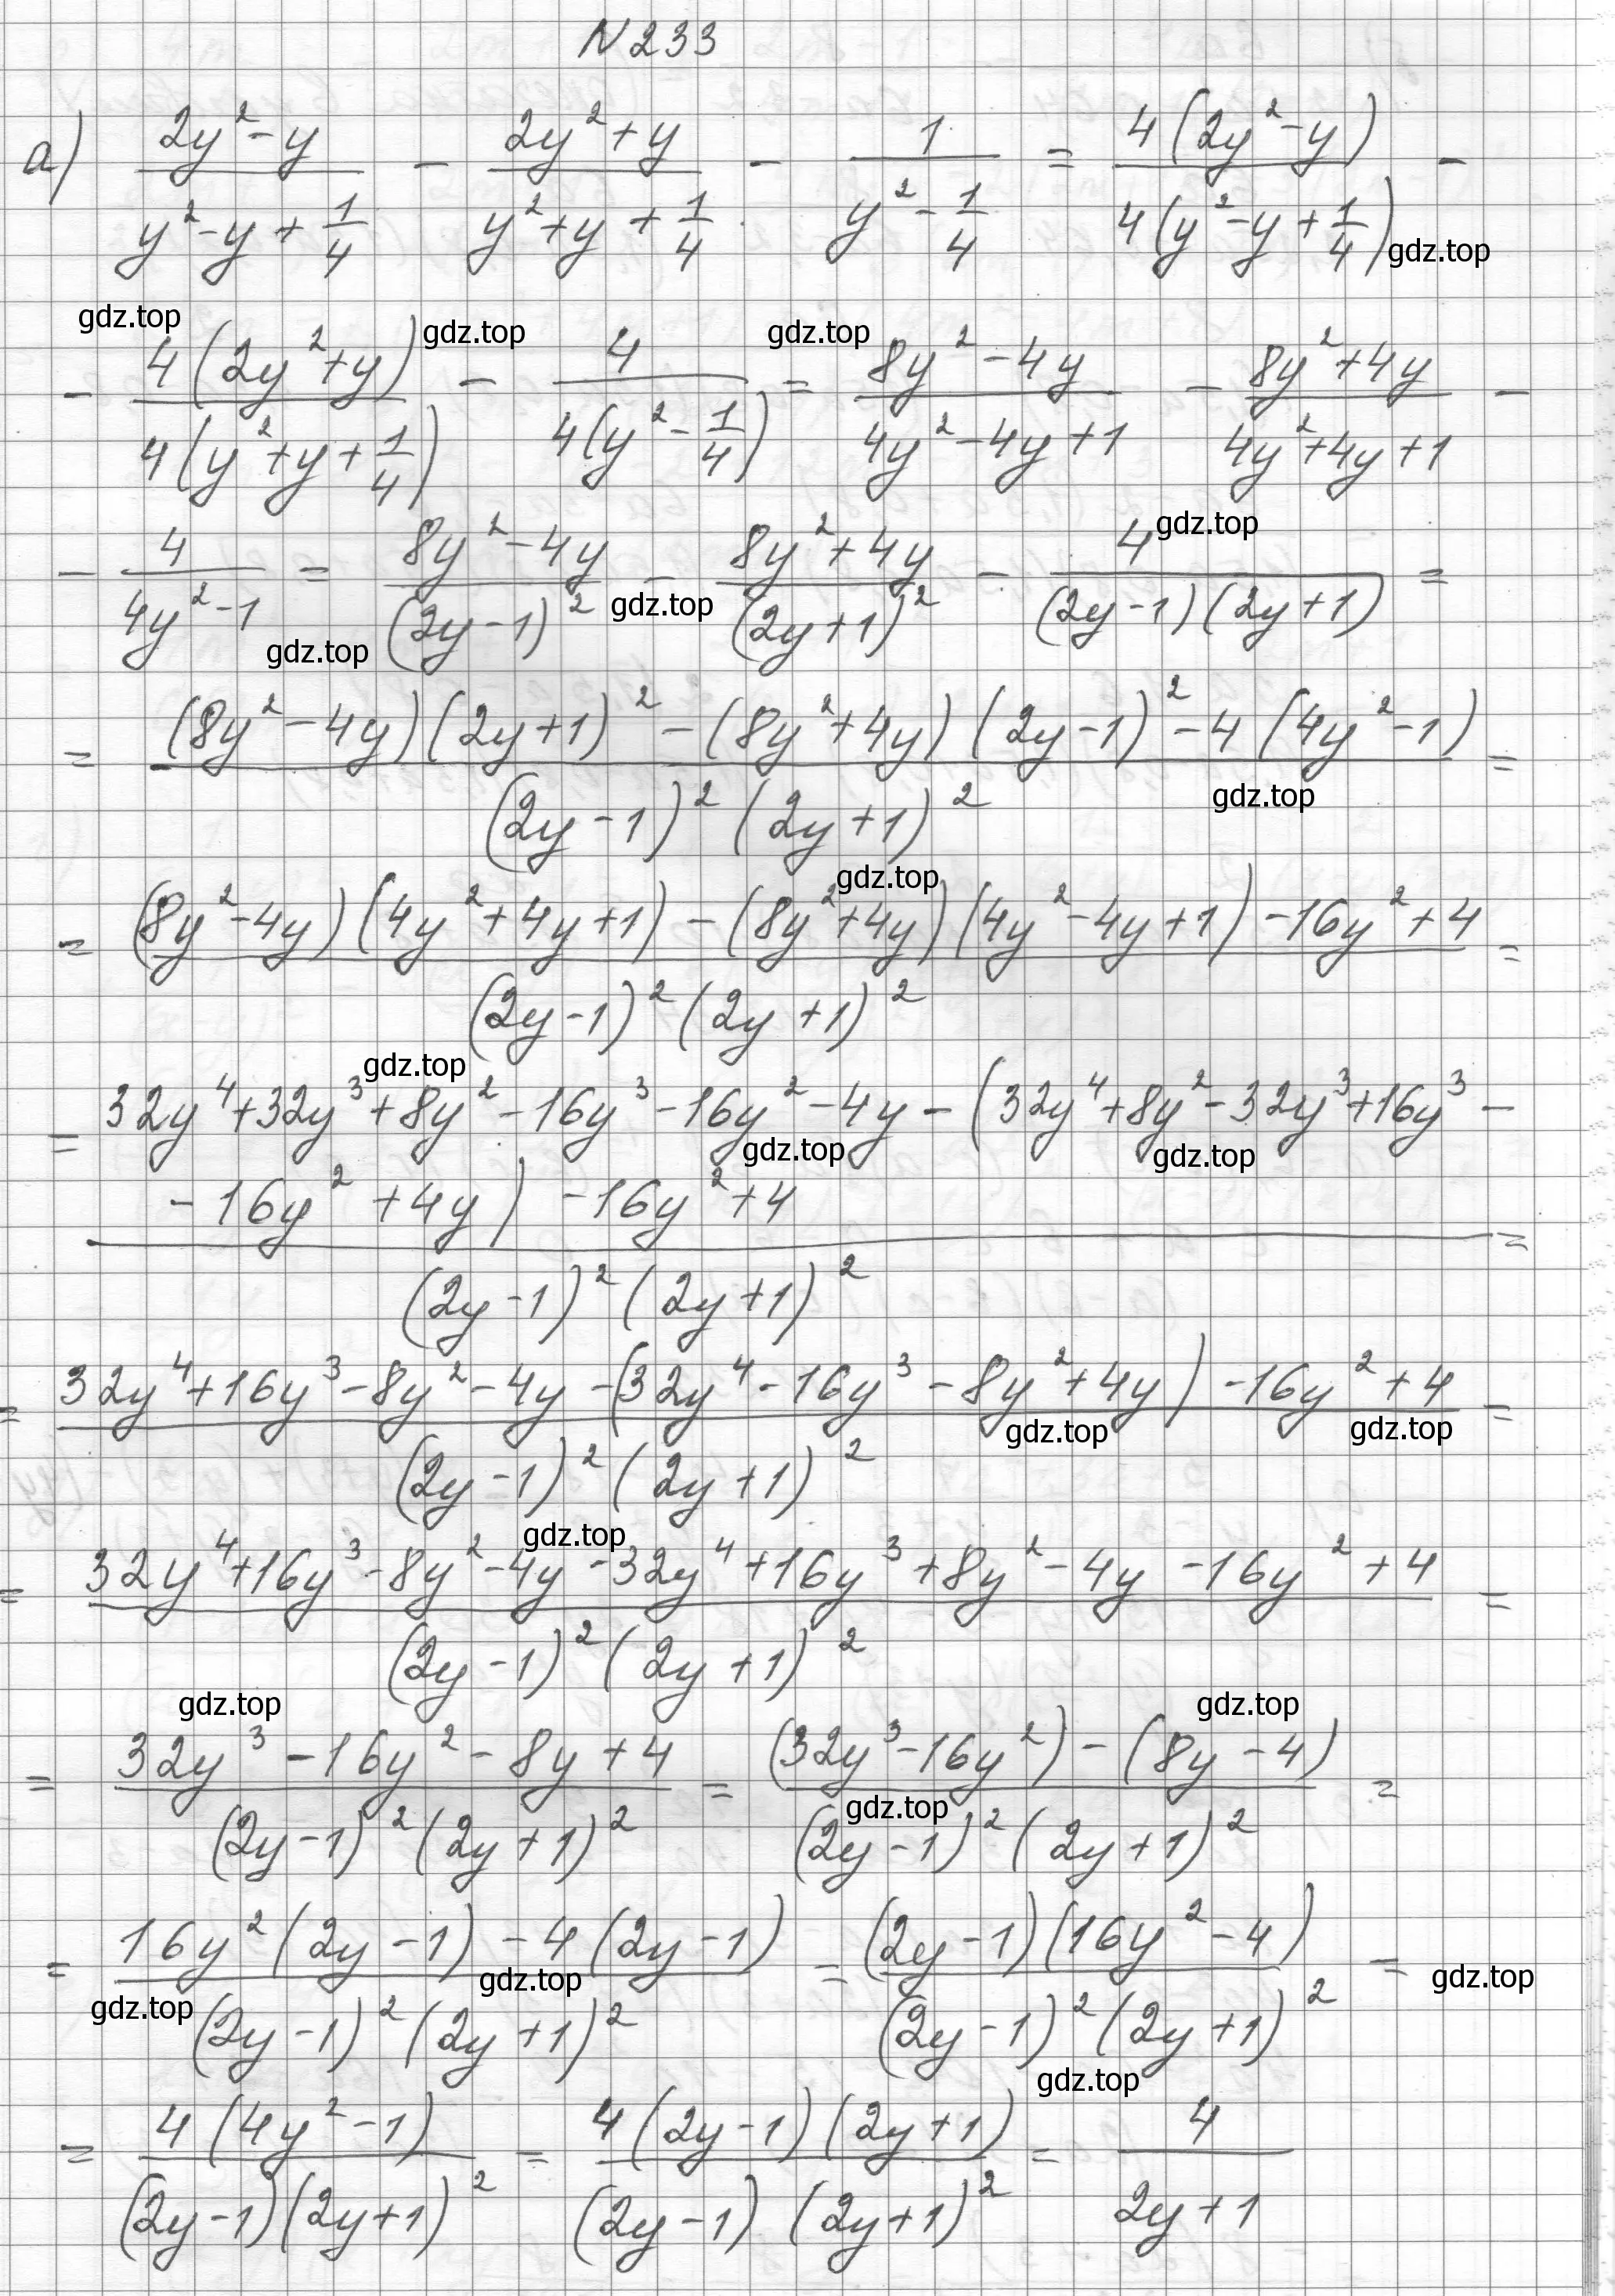 N 233
а) (2y² - y)/(y² - y + 1/4) - (2y² + y)/(y² + y + 1/4) - 1/(y² - 1/4) = 4(2y² - y)/4(y² - y + 1/4) -
gdz.top
gdz.top gdz.top gdz.top
- 4(2y² + y)/4(y² + y + 1/4) - 4/4(y² - 1/4) = (8y² - 4y)/(4y² - 4y + 1) - (8y² + 4y)/(4y² + 4y + 1) -
gdz.top
- 4/(4y² - 1) = (8y² - 4y)/(2y - 1)² - (8y² + 4y)/(2y + 1)² - 4/(2y - 1)(2y + 1) =
gdz.top gdz.top
= (8y² - 4y)(2y + 1)² - (8y² + 4y)(2y - 1)² - 4(4y² - 1) =
gdz.top
(2y - 1)² (2y + 1)²
gdz.top
= (8y² - 4y)(4y² + 4y + 1) - (8y² + 4y)(4y² - 4y + 1) - 16y² + 4 =
(2y - 1)² (2y + 1)²
gdz.top
= 32y⁴ + 32y³ + 8y² - 16y³ - 16y² - 4y - (32y⁴ + 8y² - 32y³ + 16y³ -
gdz.top gdz.top
- 16y² + 4y) - 16y² + 4 =
(2y - 1)² (2y + 1)²
= 32y⁴ + 16y³ - 8y² - 4y - (32y⁴ - 16y³ - 8y² + 4y) - 16y² + 4 =
gdz.top gdz.top
(2y - 1)² (2y + 1)²
gdz.top
= 32y⁴ + 16y³ - 8y² - 4y - 32y⁴ + 16y³ + 8y² - 4y - 16y² + 4 =
(2y - 1)² (2y + 1)²
gdz.top gdz.top
= (32y³ - 16y² - 8y + 4)/(2y - 1)² (2y + 1)² = ((32y³ - 16y²) - (8y - 4))/(2y - 1)² (2y + 1)² =
gdz.top
= (16y² (2y - 1) - 4(2y - 1))/(2y - 1)² (2y + 1)² = (2y - 1)(16y² - 4)/(2y - 1)² (2y + 1)² =
gdz.top gdz.top gdz.top
gdz.top
= 4(4y² - 1)/(2y - 1)(2y + 1)² = 4(2y - 1)(2y + 1)/(2y - 1) (2y + 1)² = 4/(2y + 1)